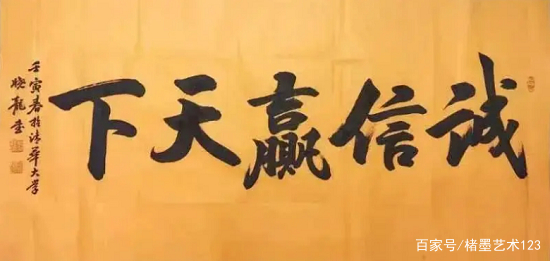 诚信赢天下
壬寅春於清华大学
晓龙书
百家号/楮墨艺术123